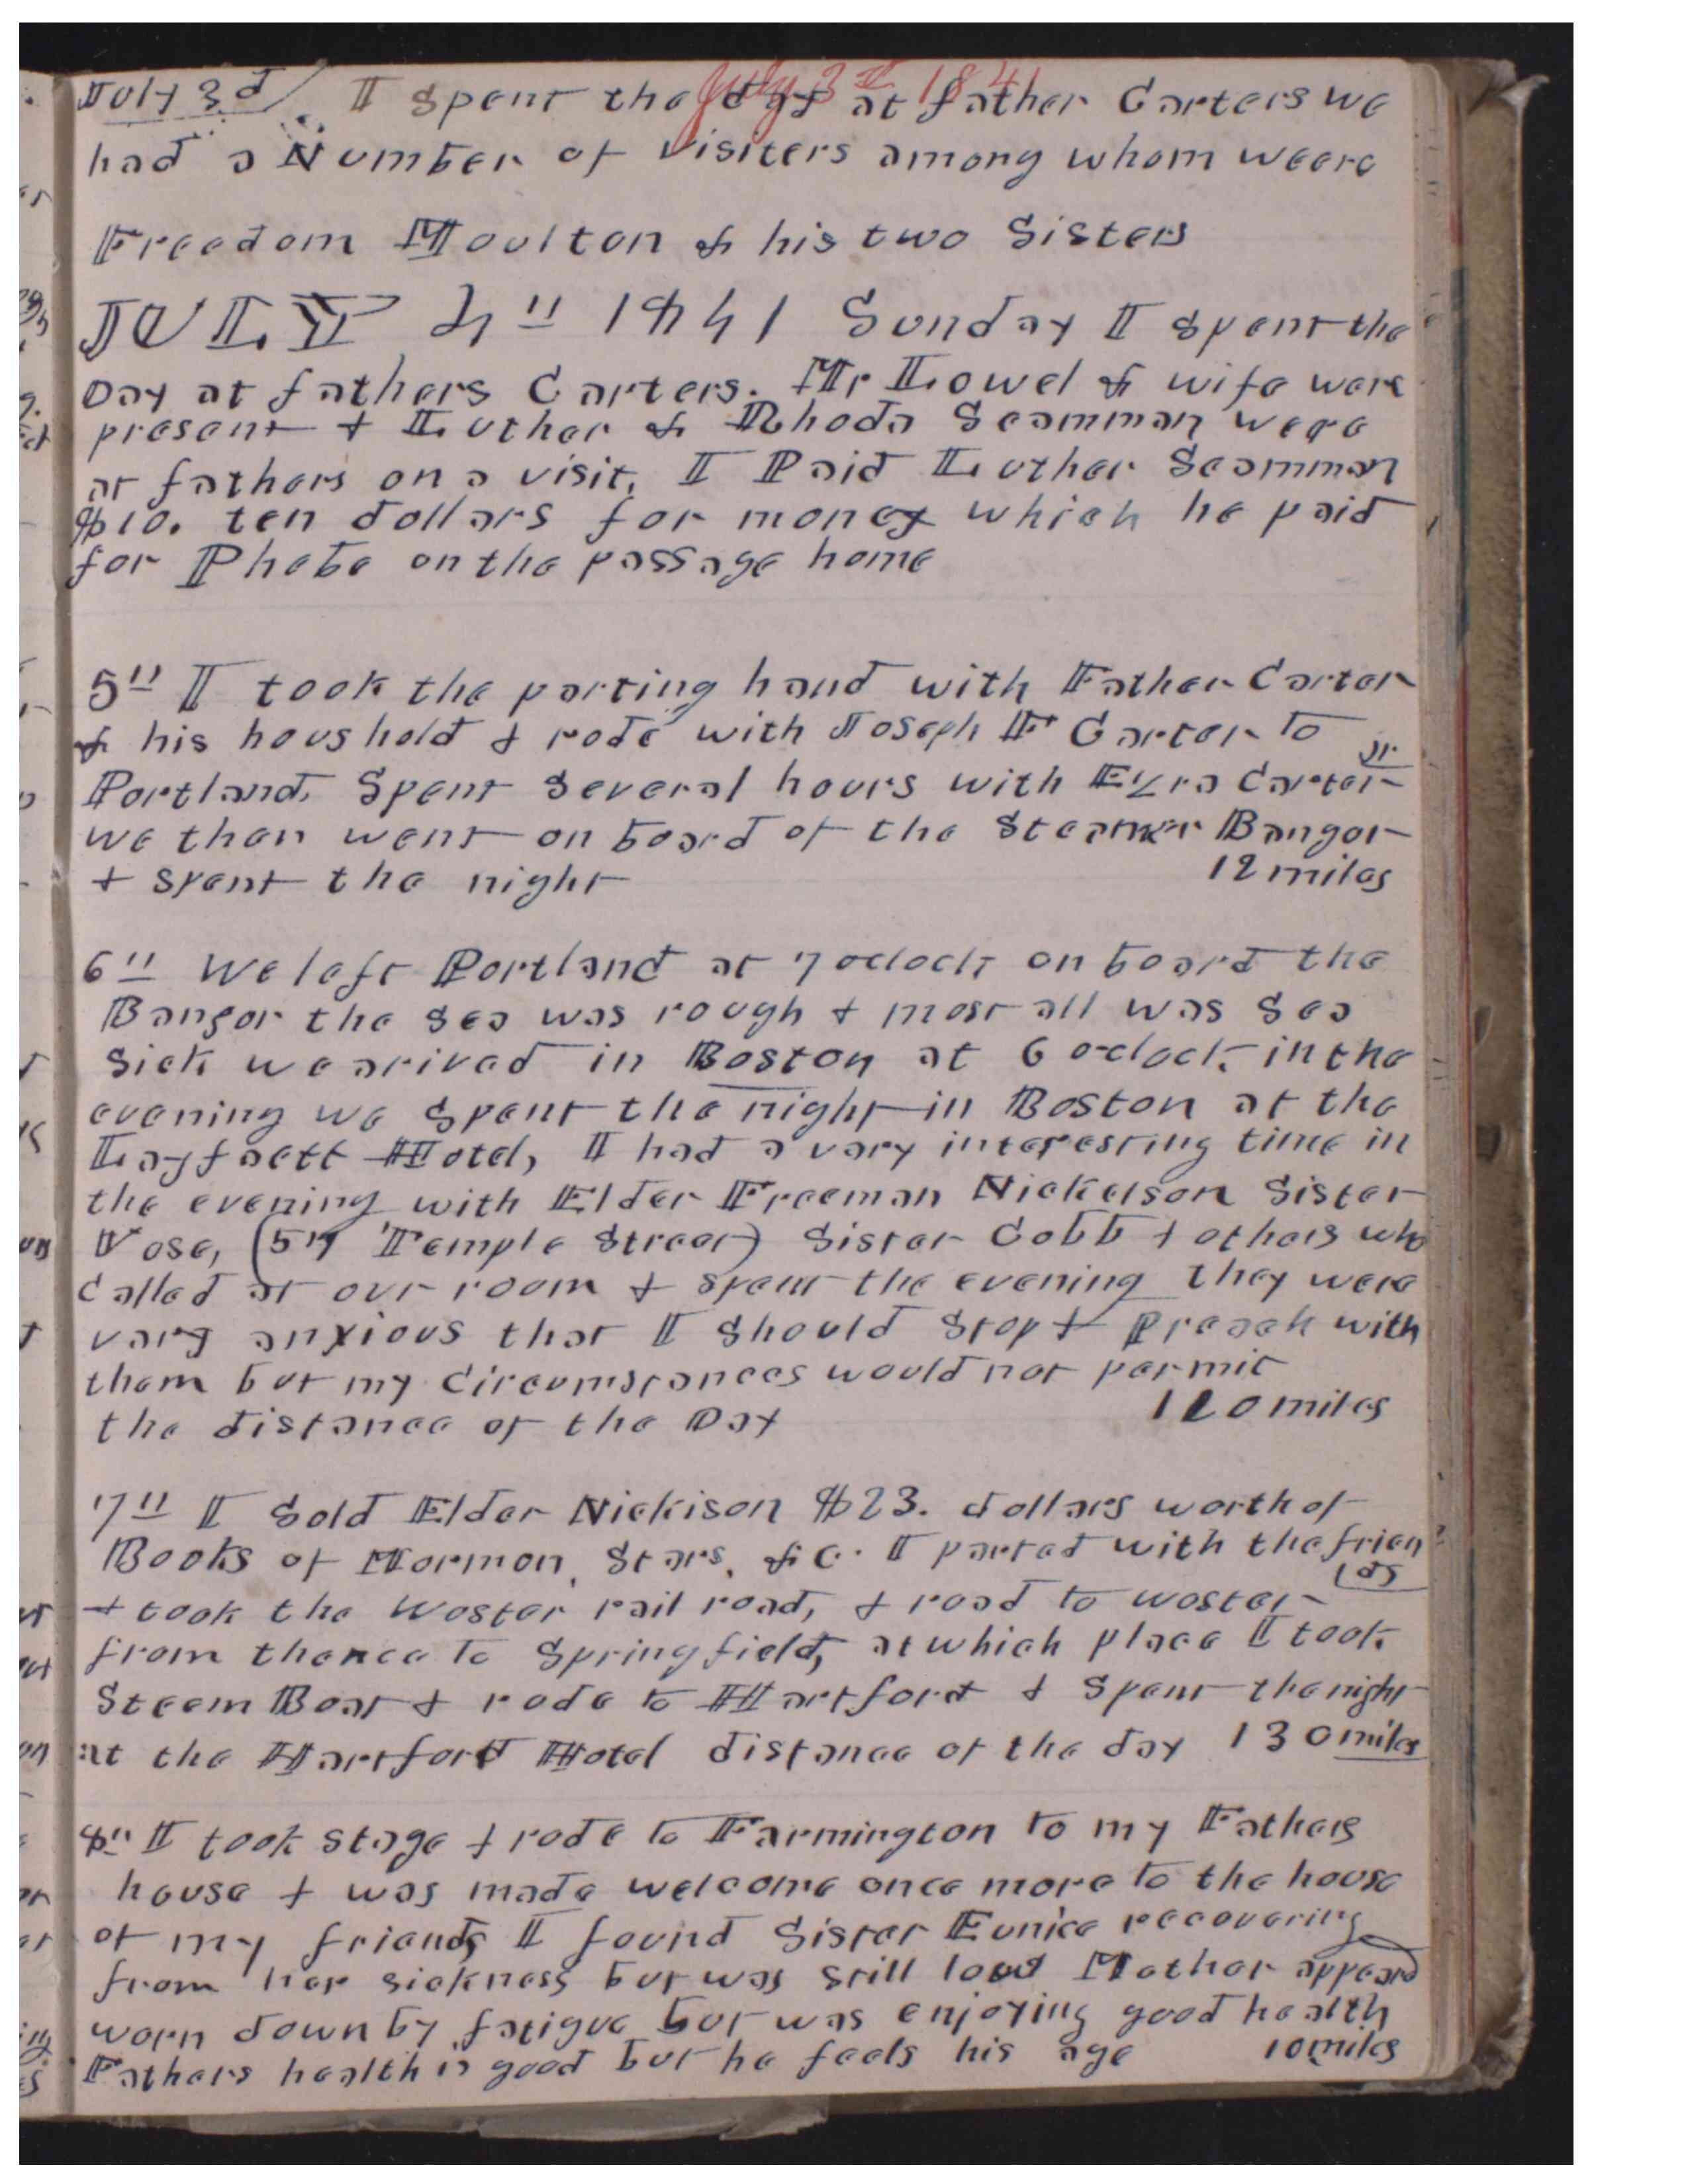 July 3d 1841
July 3d I spent the day at father Carters we
had a Number of visiters among whom weere
Freedom Moulton & his two Sisters
JULY 4" 1841 Sunday I spent the
Day at fathers Carters. Mr Lowel & wife were
present & Luther & Rhoda Scamman were
at fathers on a visit. I Paid Luther Scamman
$10. ten dollars for money which he paid
for Phebe on the passage home
5" I took the parting hand with Father Carter
& his houshold & rode with Joseph F Carter to
Portland. Spent several hours with Ezra Carter Jr.
we then went on board of the Steamer Bangor
& spent the night 12 miles
6" We left Portland at 7 oclock on board the
Bangor the sea was rough & most all was Sea
Sick we arived in Boston at 6 o-clock in the
evening we spent the night in Boston at the
Layfaett Hotel, I had a vary interesting time in
the evening with Elder Freeman Nickelson Sister
Vose, (57 Temple Street) Sister Cobb & others who
called at our room & spent the evening they were
vary anxious that I should stop & Preach with
them but my circumstances would not permit
the distance of the Day 120 miles
7" I Sold Elder Nickison $23. dollars worth of
Books of Mormon, Stars, &c. I parted with the frien
ds
& took the Woster rail road, & road to woster
from thence to Springfield, at which place I took
Steem Boat & rode to Hartford & spent the night
at the Hartford Hotel distance of the day 130 miles
8" I took stage & rode to Farmington to my Fathers
house & was made welcome once more to the house
of my friends I found Sister Eunice recovering
from her sickness but was still low Mother appeard
worn down by fatigue but was enjoying good health
Fathers health is good but he feels his age 10 miles